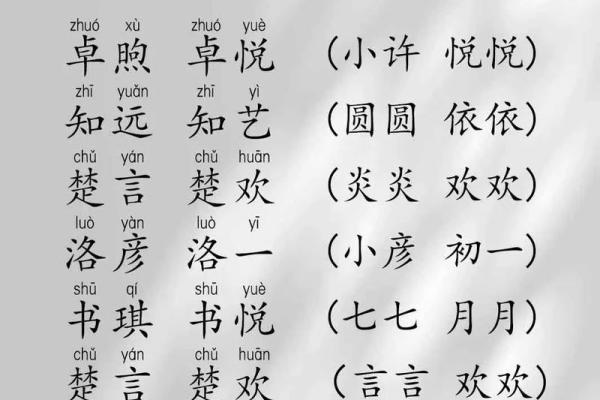 zhuó xù zhuó yuè
卓煦 卓悦 (小许 悦悦)
zhī yuǎn zhī yì
知远 知艺 (圆圆 依依)
chǔ yán chǔ huān
楚言 楚欢 (炎炎 欢欢)
luò yàn luò yī
洛彦 洛一 (小彦 初一)
shū qí shū yuè
书琪 书悦 (七七 月月)
chǔ yán chǔ huān
楚言 楚欢 (言言 欢欢)